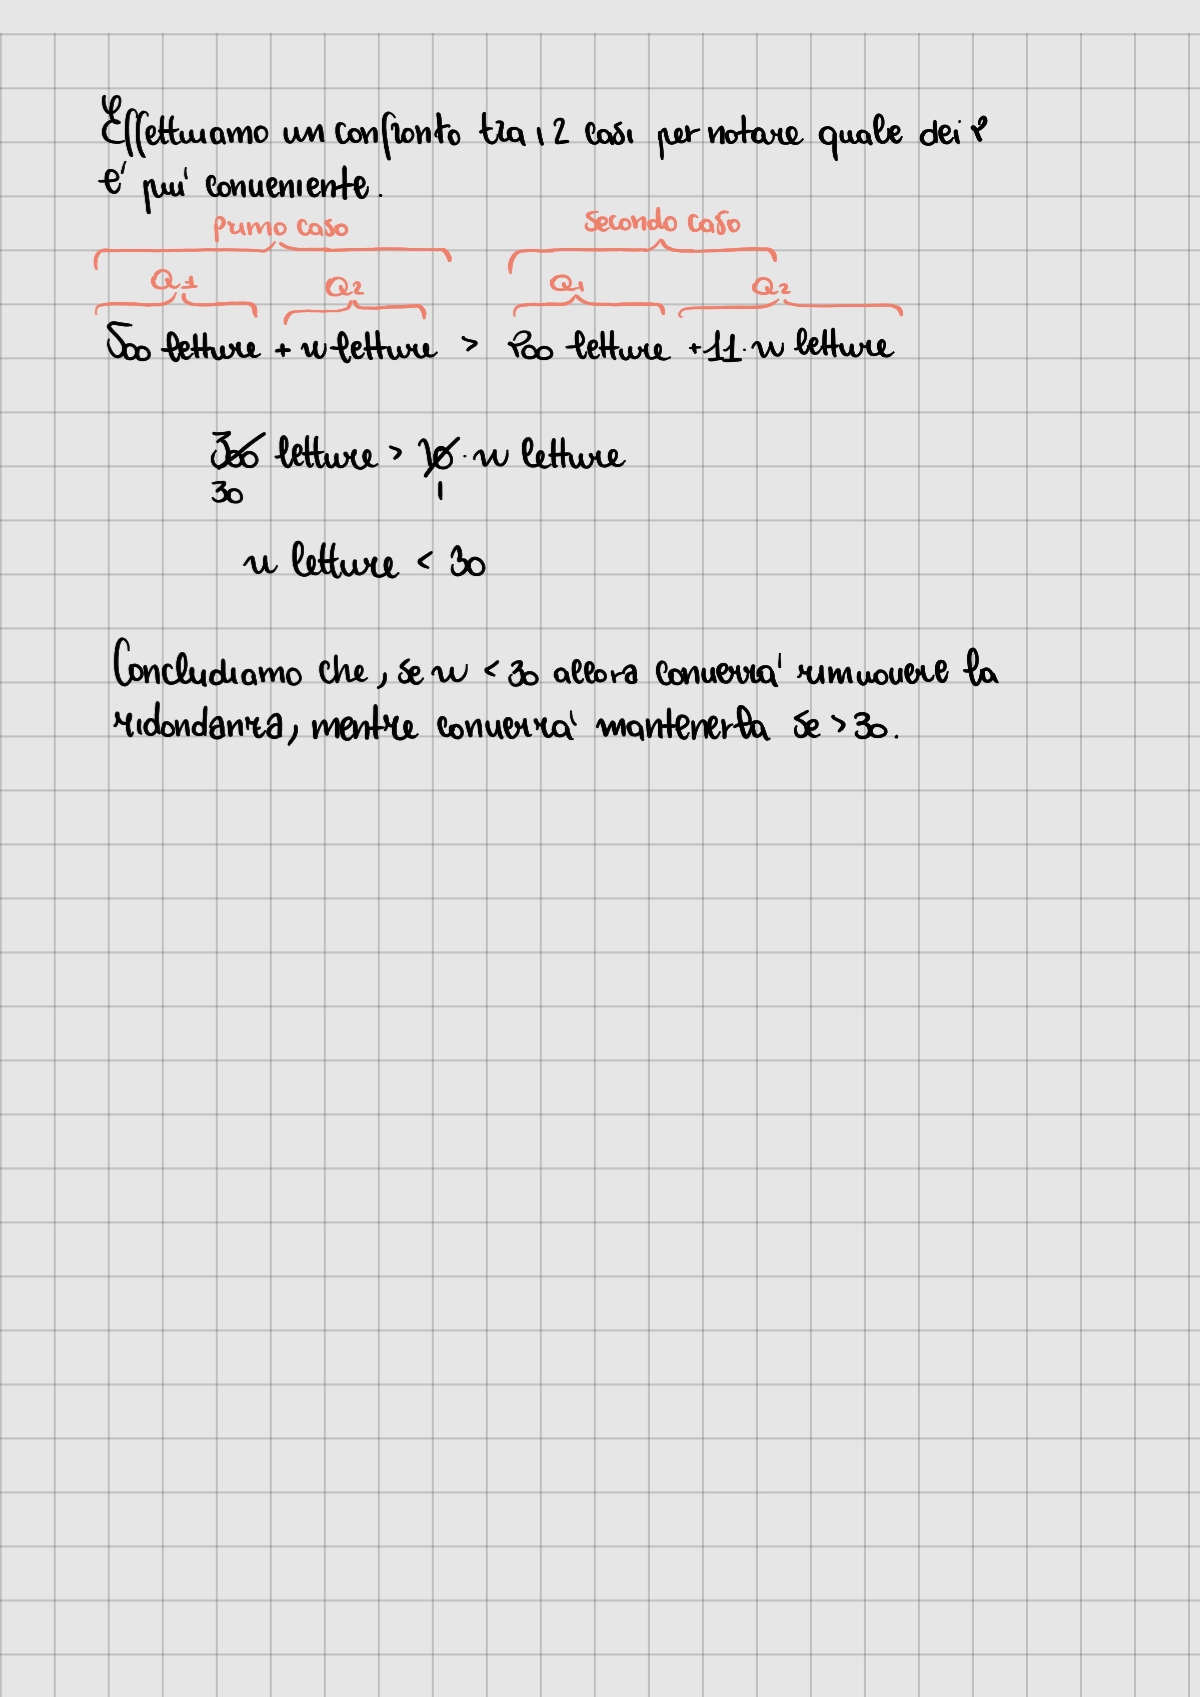 Effettuiamo un confronto tra i 2 casi per notare quale dei 2
e' piu' conveniente.
Primo caso Secondo caso
Q1 Q2 Q1 Q2
500 letture + n letture > 200 letture + 11 · n letture
300 letture > 10 · n letture
30 1
n letture < 30
Concludiamo che, se n < 30 allora converra' rimuovere la
ridondanza, mentre converra' mantenerla se > 30.